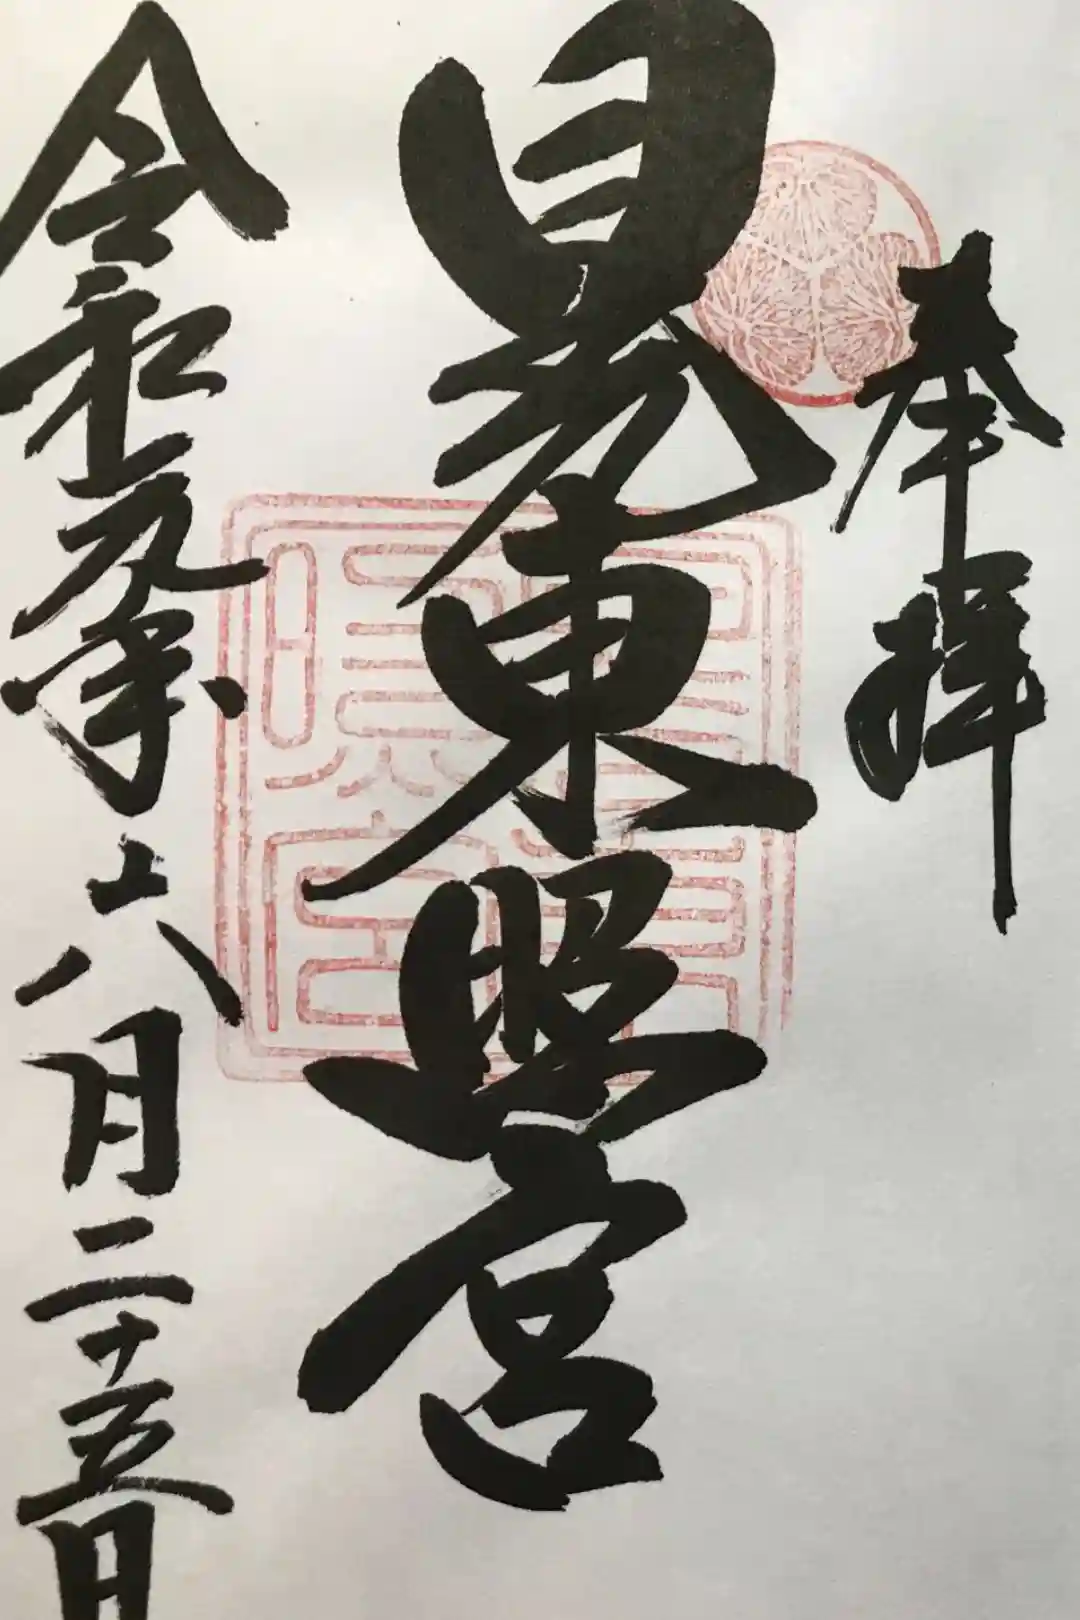 奉拝
日光東照宮
令和元年六月二十五日